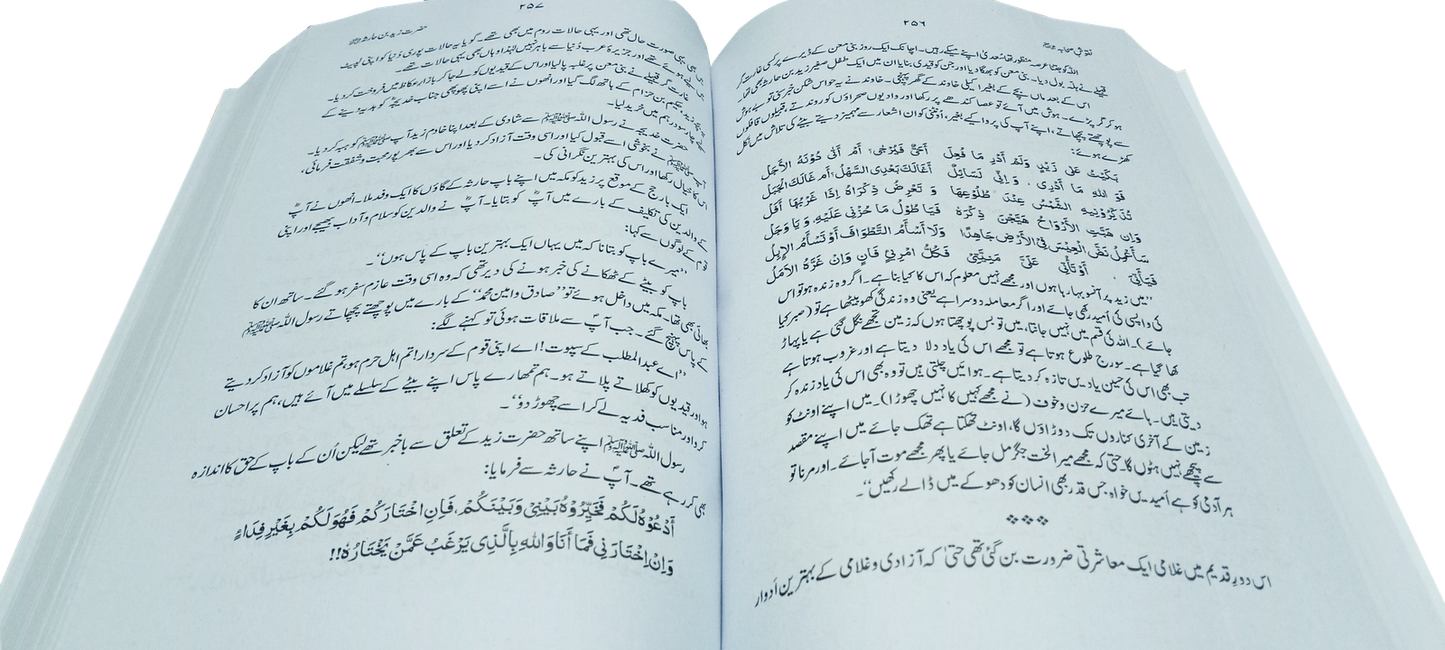 ۲۵۶
نقوشِ صحابہ
اللہ کو جتنا عرصہ منظور تھا سُعدیٰ اپنے میکے رہیں۔ اچانک ایک روز بنی معن کے ڈیرے پر کسی غارت گر
قبیلے نے ہلہ بول دیا۔ بنی معن کو بھگا دیا اور جن کو قیدی بنایا ان میں ایک طفل صغیر زید بن حارثہ بھی تھا۔
اس کے بعد ماں بچے کے بغیر اکیلی خاوند کے گھر پہنچی۔ خاوند نے یہ حواس شکن خبر سنی تو بے ہوش
ہو کر گر پڑے۔ ہوش میں آئے تو عصا کندھے پر رکھا اور وادیوں صحراؤں کو روندتے، قبیلوں قافلوں
سے پوچھتے پچھاتے، اپنے آپ کی پروا کیے بغیر، اُونٹنی کو ان اشعار سے مہمیز دیتے بیٹے کی تلاش میں نکل
کھڑے ہوئے:
بَکَیْتُ عَلٰی زَیْدٍ وَلَمْ اَدْرِ مَا فَعِلَ اَحَیٌّ فَیُرْجٰی؟ اَمْ اَتٰی دُوْنَهُ الْاَجَلْ
فَوَ اللهِ مَا اَدْرِی، وَ اِنِّی لَسَائِلٌ اَغَالَکَ بَعْدِی السَّهْلُ اَمْ غَالَکَ الْجَبَلْ
تُذَکِّرُوْنِیْهِ الشَّمْسُ عِنْدَ طُلُوْعِهَا وَ تَعْرِضُ ذِکْرَاهُ اِذَا غَرْبُهَا اَفَلْ
وَاِنْ هَبَّتِ الْاَرْوَاحُ هَیَّجْنَ ذِکْرَهٗ فَیَا طُوْلُ مَا حُزْنِیْ عَلَیْهِ وَ یَا وَجَلْ
سَاُعْمِلُ نَصَّ الْعِیْسِ فِی الْاَرْضِ جَاهِدًا وَلَا اَسْاَمُ التَّطْوَافَ اَوْ تَسْاَمُ الْاِبِلْ
حَیَاتِیْ اَوْ تَاْتِیْ عَلَیَّ مَنِیَّتِیْ فَکُلُّ امْرِئٍ فَانٍ وَاِنْ غَرَّهُ الْاَمَلْ
”میں زید پر آنسو بہا رہا ہوں اور مجھے نہیں معلوم کہ اس کا کیا بنا ہے۔ اگر وہ زندہ ہو تو اس
کی واپسی کی اُمید رکھی جائے اور اگر معاملہ دوسرا ہے یعنی وہ زندگی کھو بیٹھا ہے تو (صبر کیا
جائے)۔ اللہ کی قسم میں نہیں جانتا، میں تو بس پوچھتا ہوں کہ زمین تجھے نگل گئی ہے یا پہاڑ
کھا گیا ہے۔ سورج طلوع ہوتا ہے تو مجھے اس کی یاد دلا دیتا ہے اور غروب ہوتا ہے
تب بھی اس کی حسین یادیں تازہ کر دیتا ہے۔ ہوائیں چلتی ہیں تو وہ بھی اس کی یاد زندہ کر
دیتی ہیں۔ ہائے میرے حزن و خوف (نے مجھے کہیں کا نہیں چھوڑا)۔ میں اپنے اونٹ کو
زمین کے آخری کناروں تک دوڑاؤں گا، اونٹ تھکتا ہے تھک جائے میں اپنے مقصد
سے پیچھے نہیں ہٹوں گا۔ حتیٰ کہ مجھے میرا لخت جگر مل جائے یا پھر مجھے موت آ جائے۔ اور مرنا تو
ہر آدمی کو ہے اُمیدیں خواہ جس قدر بھی انسان کو دھوکے میں ڈالے رکھیں“۔
❖❖❖
اس دورِ قدیم میں غلامی ایک معاشرتی ضرورت بن گئی تھی حتیٰ کہ آزادی و غلامی کے بہترین اَدوار
۲۵۷
حضرت زید بن حارثہ
میں بھی یہی صورت حال تھی اور یہی حالات روم میں بھی تھے۔ گویا یہ حالات پوری دُنیا کو اپنی لپیٹ
میں لیے ہوئے تھے اور جزیرۂ عرب دُنیا سے باہر نہیں لہٰذا وہاں بھی یہی حالات تھے۔
غارت گر قبیلے نے بنی معن پر غلبہ پا لیا اور اس کے قیدیوں کو لے جا کر بازارِ عکاظ میں فروخت کر دیا۔
بچہ زید حکیم بن حزام کے ہاتھ لگ گیا اور انھوں نے اسے اپنی پھوپھی جناب خدیجہؓ کو ہدیہ دینے کے
لیے چار سو درہم میں خرید لیا۔
حضرت خدیجہؓ نے رسول اللہ ﷺ سے شادی کے بعد اپنا خادم زید آپ ﷺ کو ہبہ کر دیا۔
آپ ﷺ نے بخوشی اسے قبول کیا اور اسی وقت آزاد کر دیا اور اس سے بھرپور محبت و شفقت فرمائی،
اس کا خیال رکھا اور اس کی بہترین نگرانی کی۔
ایک بار حج کے موقع پر زید کو مکہ میں اپنے باپ حارثہ کے گاؤں کا ایک وفد ملا۔ انھوں نے آپؓ
کے والدین کی تکلیف کے بارے میں آپؓ کو بتایا۔ آپؓ نے والدین کو سلام و آداب بھیجے اور اپنی
قوم کے لوگوں سے کہا:
”میرے باپ کو بتانا کہ میں یہاں ایک بہترین باپ کے پاس ہوں“۔
باپ کو بیٹے کے ٹھکانے کی خبر ہونے کی دیر تھی کہ وہ اسی وقت عازمِ سفر ہو گئے۔ ساتھ ان کا
بھائی بھی تھا۔ مکہ میں داخل ہوئے تو ”صادق و امین محمدؐ“ کے بارے میں پوچھتے پچھاتے رسول اللہ ﷺ
کے پاس پہنچ گئے۔ جب آپؐ سے ملاقات ہوئی تو کہنے لگے:
”اے عبدالمطلب کے سپوت! اے اپنی قوم کے سردار! تم اہل حرم ہو، تم غلاموں کو آزاد کر دیتے
ہو اور قیدیوں کو کھلاتے پلاتے ہو۔ ہم تمھارے پاس اپنے بیٹے کے سلسلے میں آئے ہیں، ہم پر احسان
کرو اور مناسب فدیہ لے کر اسے چھوڑ دو“۔
رسول اللہ ﷺ اپنے ساتھ حضرت زید کے تعلق سے باخبر تھے لیکن اُن کے باپ کے حق کا اندازہ
بھی کر رہے تھے۔ آپؐ نے حارثہ سے فرمایا:
اُدْعُوْهُ لَکُمْ فَخَیِّرُوْهُ بَیْنِیْ وَبَیْنَکُمْ، فَاِنِ اخْتَارَکُمْ فَهُوَ لَکُمْ بِغَیْرِ فِدَاءٍ
وَاِنِ اخْتَارَنِی فَمَا اَنَا وَاللهِ بِالَّذِی یَرْغَبُ عَمَّنْ یَخْتَارُهٗ!!